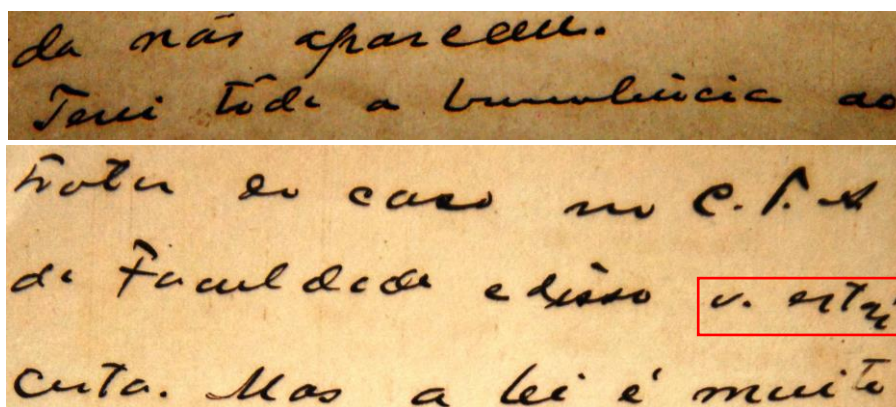 da não apareceu.
Terei tôda a benevolência ao
tratar do caso no C.T.A
da Faculdade e disso v. está
certa. Mas a lei é muito